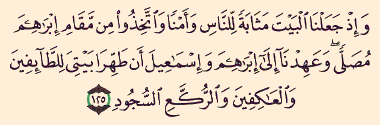 وَإِذْ جَعَلْنَا ٱلْبَيْتَ مَثَابَةً لِّلنَّاسِ وَأَمْنًا وَٱتَّخِذُوا۟ مِن مَّقَامِ إِبْرَٰهِـۧمَ
مُصَلًّى ۖ وَعَهِدْنَآ إِلَىٰٓ إِبْرَٰهِـۧمَ وَإِسْمَـٰعِيلَ أَن طَهِّرَا بَيْتِىَ لِلطَّآئِفِينَ
وَٱلْعَـٰكِفِينَ وَٱلرُّكَّعِ ٱلسُّجُودِ ١٢٥